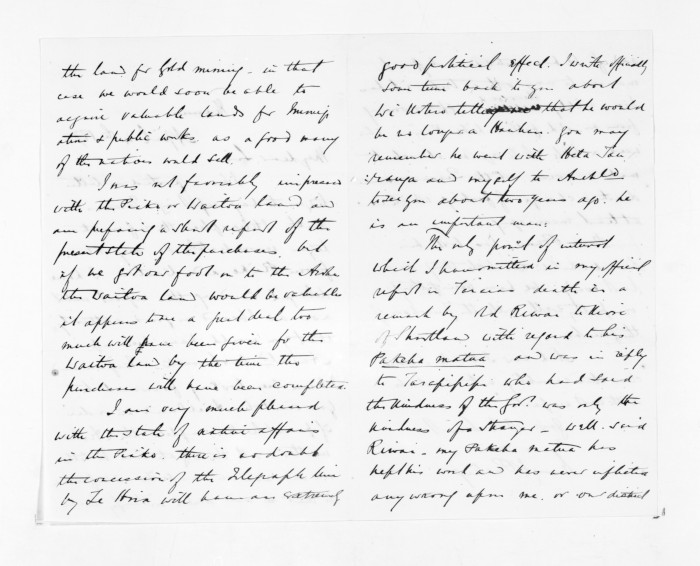 the land for Gold mining - in that
case we would soon be able to
acquire valuable lands for Immig
ation & public works as a good many
of the natives would sell.
I was not favorably impressed
with the Piako or Waitoa land and
am preparing a short report of the
present state of the purchases. but
if we got our foot on to the Aroha
the Waitoa land would be valuable
it appears to me a great deal too
much will have been given for the
Waitoa land by the time the
purchases will have been completed.
I am very much pleased
with the state of native affairs
in the Piako. there is no doubt
the concession of the Telegraph line
by Te Hira will have an extremely
good political effect. I wrote officially
some time back to you about
Wi Kotero that he would
be no longer a Hauhau. you may
remember he went with Hata
and myself to Auckld
to see you about two years ago. he
is an important man.
The only point of interest
which I have omitted in my official
report in death is a
remark by old Riwai
of Shortland with regard to his
Pakeha matua and was in reply
to Taraipipipi who had said
the kindness of the Govt. was only the
kindness of a stranger - Well. said
Riwai - my Pakeha matua has
kept his word and has never inflicted
any wrong upon me. or our district